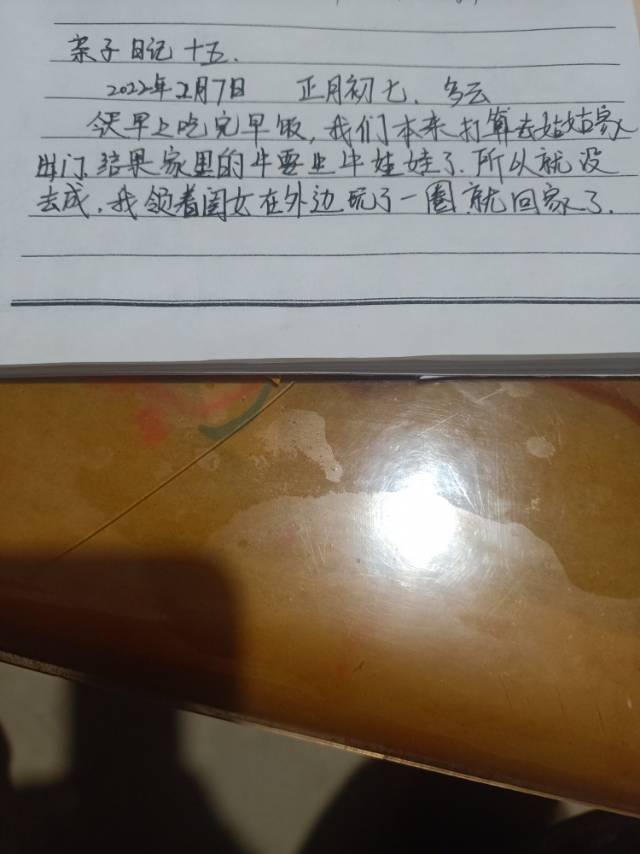 亲子日记 十五.
2022年2月7日 正月初七. 多云
今天早上吃完早饭,我们本来打算去姑姑家
出门.结果家里的牛要生牛娃娃了.所以就没
去成.我领着闺女在外边玩了一圈.就回家了.